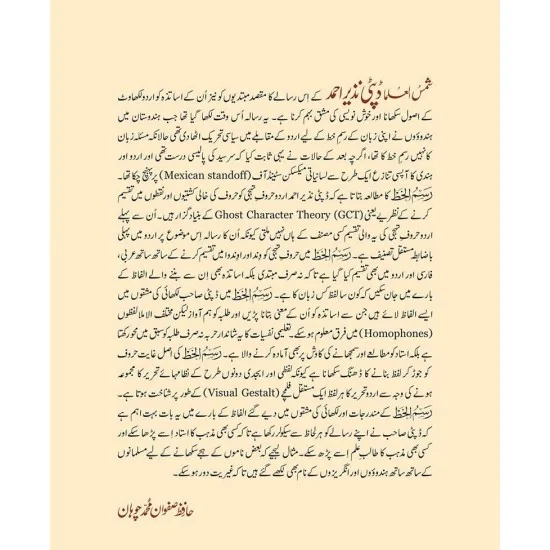 شمس العلما ڈپٹی نذیر احمد کے اِس رسالے کا مقصد مبتدیوں کو نیز اُن کے اساتذہ کو اردو لکھاوٹ
کے اصول سکھانا اور خوش نویسی کی مشق بہم کرنا ہے۔ یہ رسالہ اُس وقت لکھا گیا تھا جب ہندوستان میں
ہندوؤوں نے اپنی زبان کے رسمِ خط کے لیے اردو کے مقابلے میں سیاسی تحریک اٹھا دی تھی حالانکہ مسئلہ زبان
کا نہیں رسمِ خط کا تھا، اگرچہ بعد کے حالات نے یہی ثابت کیا کہ سرسید کی پالیسی درست تھی اور اردو
ہندی کا آپسی تنازع ایک طرح سے لسانیاتی میکسکن سٹینڈ آف (Mexican standoff) پر پہنچ چکا تھا۔
رسم الخط کا مطالعہ بتاتا ہے کہ ڈپٹی نذیر احمد اردو حروفِ تہجی کو حروف کی خالی کشتیوں اور نقطوں میں تقسیم
کرنے کے نظریے یعنی Ghost Character Theory (GCT) کے بنیاد گزار ہیں۔ اُن سے پہلے
اردو حروفِ تہجی کی یہ والی تقسیم کسی مصنف کے ہاں نہیں ملتی کیونکہ اُن کا رسالہ اِس موضوع پر اردو میں پہلی
باضابطہ مستقل تصنیف ہے۔ رسم الخط میں حروفِ تہجی کو ہندو اور اوندوا میں تقسیم کرنے کے ساتھ ساتھ عربی،
فارسی اور اردو میں بھی تقسیم کیا گیا ہے تاکہ نہ صرف مبتدی بلکہ اساتذہ بھی اِن سے بننے والے الفاظ کے
بارے میں جان سکیں کہ کون سا لفظ کس زبان کا ہے۔ رسم الخط میں ڈپٹی صاحب لکھائی کی مشقوں میں
ایسے الفاظ لائے ہیں جن سے اساتذہ کو اُن کے معنی بتانا پڑیں اور طلبہ کو ہم آواز لیکن مختلف الاملا لفظوں
(Homophones) میں فرق معلوم ہو سکے۔ تعلیمی نفسیات کا یہ شاندار حربہ نہ صرف طلبہ کو سبق میں محو رکھتا
ہے بلکہ استاد کو مطالعے اور سمجھانے کی کاوش پر بھی آمادہ کرنے والا ہے۔ رسم الخط کی اصل غایت حروف
کو جوڑ کر لفظ بنانے کا ڈھنگ سکھانا ہے کیونکہ لفظی اور ابجدی دونوں طرح کے نظامہائے تحریر کا مجموعہ
ہونے کی وجہ سے اردو تحریر کا ہر لفظ ایک مستقل فلیچے (Visual Gestalt) کے طور پر شناخت ہوتا ہے۔
رسم الخط کے مندرجات اور لکھائی کی مشقوں میں دیے گئے الفاظ کے بارے میں یہ بات بہت اہم ہے
کہ ڈپٹی صاحب نے اپنے رسالے کو ہر لحاظ سے سیکولر رکھا ہے تاکہ کسی بھی مذہب کا استاد اِسے پڑھا سکے اور
کسی بھی مذہب کا طالبِ علم اِسے پڑھ سکے۔ مثال لیجیے کہ بعض ناموں کے ہجے سکھانے کے لیے مسلمانوں
کے ساتھ ساتھ ہندوؤوں اور انگریزوں کے نام بھی لکھے گئے ہیں تاکہ غیریت دور ہو سکے۔
حافظ صفوان محمد چوہان